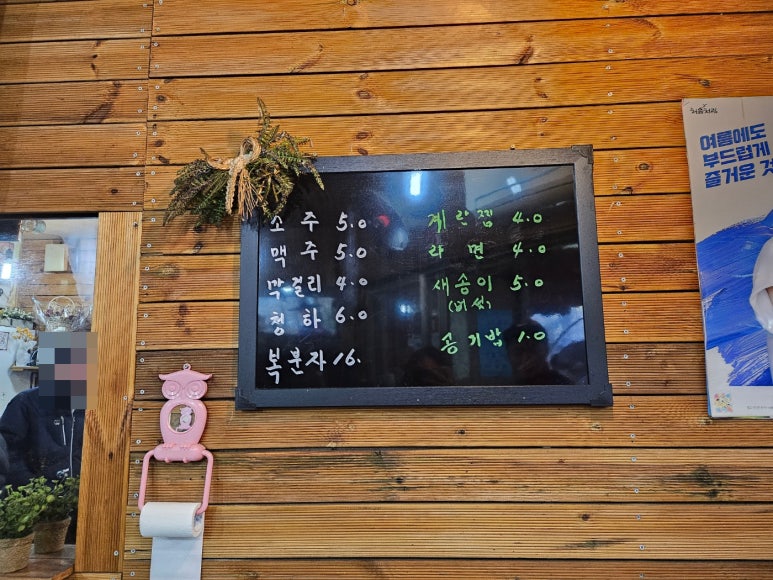 소주 5.0
맥주 5.0
막걸리 4.0
청하 6.0
복분자 16.
계란찜 4.0
라면 4.0
새송이 5.0
(버섯)
공기밥 1.0
처음처럼
여름에도
부드럽게
즐거운 것